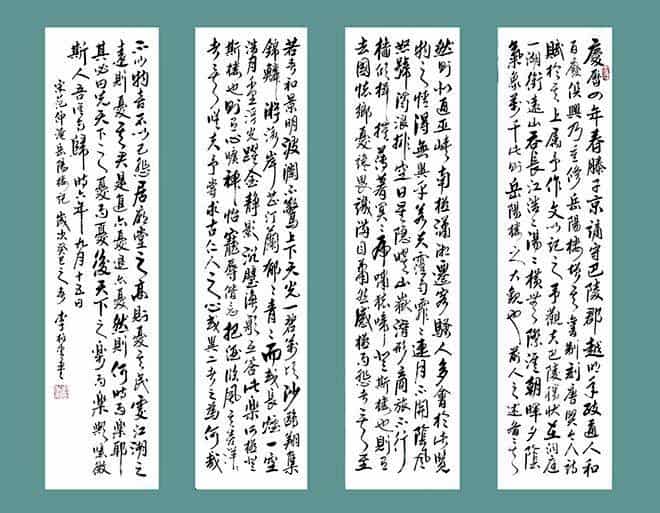 慶曆四年春滕子京謫守巴陵郡越明年政通人和
百廢俱興乃重修岳陽樓增其舊制刻唐賢今人詩
賦於其上屬予作文以記之予觀夫巴陵勝狀在洞庭
一湖銜遠山吞長江浩浩湯湯橫無際涯朝暉夕陰
氣象萬千此則岳陽樓之大觀也前人之述備矣
然則北通巫峽南極瀟湘遷客騷人多會於此覽
物之情得無異乎若夫霪雨霏霏連月不開陰風
怒號濁浪排空日星隱曜山嶽潛形商旅不行
檣傾楫摧薄暮冥冥虎嘯猿啼登斯樓也則有
去國懷鄉憂讒畏譏滿目蕭然感極而悲者矣至
若春和景明波瀾不驚上下天光一碧萬頃沙鷗翔集
錦鱗游泳岸芷汀蘭郁郁青青而或長煙一空
皓月千里浮光躍金靜影沉璧漁歌互答此樂何極登
斯樓也則有心曠神怡寵辱偕忘把酒臨風其喜洋洋
者矣嗟夫予嘗求古仁人之心或異二者之為何哉
不以物喜不以己悲居廟堂之高則憂其民處江湖之
遠則憂其君是進亦憂退亦憂然則何時而樂耶
其必曰先天下之憂而憂後天下之樂而樂歟噫微
斯人吾誰與歸時六年九月十五日
宋范仲淹岳陽樓記歲次癸巳之春李